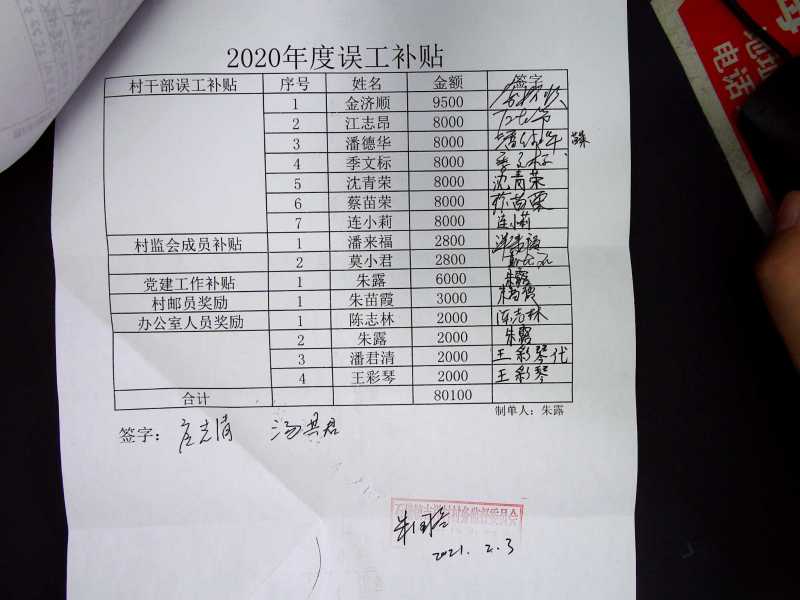 2020年度误工补贴
村干部误工补贴 序号 姓名 金额 签字
1 金济顺 9500
2 江志昂 8000
3 潘德华 8000
4 季文标 8000 季文标
5 沈青荣 8000 沈青荣
6 蔡苗荣 8000 蔡苗荣
7 连小莉 8000 连小莉
村监会成员补贴 1 潘来福 2800 潘来福
2 莫小君 2800
党建工作补贴 1 朱露 6000 朱露
村邮员奖励 1 朱苗霞 3000 朱苗霞
办公室人员奖励 1 陈志林 2000 陈志林
2 朱露 2000 朱露
3 潘君清 2000 王彩琴代
4 王彩琴 2000 王彩琴
合计 80100
制单人：朱露
签字：
村务监督委员会
2021.2.3
电话